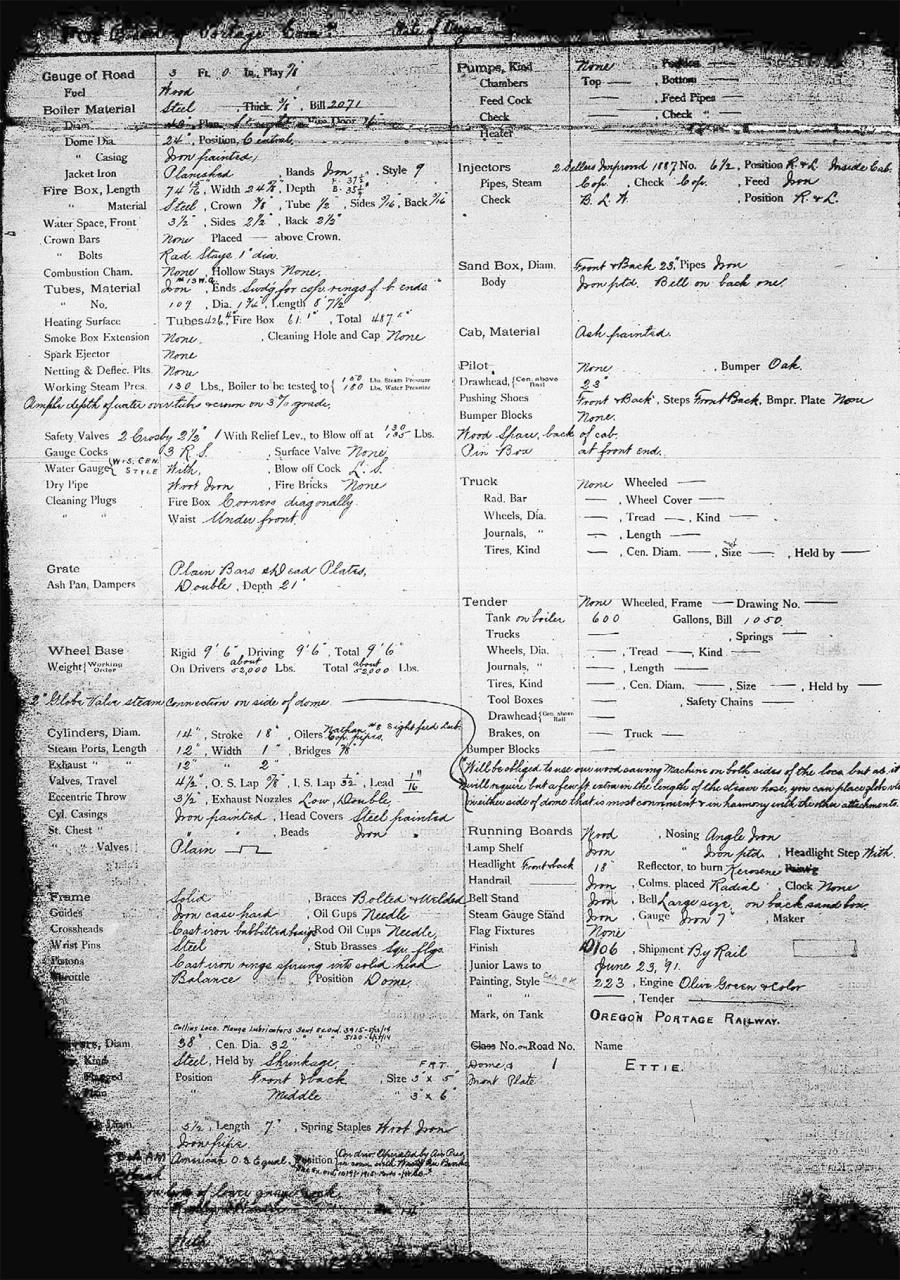 Portage Com State of Oregon
Gauge of Road 3 Ft. 0 In., Play 7/8
Fuel Wood
Boiler Material Steel , Thick. 3/8" , Bill 2071
Diam. , Plan,
Dome Dia. 24" , Position, Central,
" Casing Iron painted,
Jacket Iron Planished , Bands Iron , Style 9
Fire Box, Length , Width , Depth
" Material Steel, Crown 3/8, Tube 1/2", Sides 5/16, Back 5/16
Water Space, Front 3 1/2", Sides 2 1/2", Back 2 1/2"
Crown Bars None Placed — above Crown.
" Bolts Rad. Stays 1" dia.
Combustion Cham. None, Hollow Stays None.
Tubes, Material Iron No 13 W.G., Ends Swdg for cop. rings f. & b. ends
" No. 109 , Dia. 1 3/4", Length 8' 7 1/2"
Heating Surface Tubes 426.4, Fire Box 61.1 , Total 487.5
Smoke Box Extension None. , Cleaning Hole and Cap None
Spark Ejector None
Netting & Deflec. Plts. None
Working Steam Pres. 130 Lbs., Boiler to be tested to { 150 Lbs. Steam Pressure 180 Lbs. Water Pressure
Ample depth of water over tubs & crown on 3% grade.
Safety Valves 2 Crosby 2 1/2" 1 With Relief Lev., to Blow off at 130 135 Lbs.
Gauge Cocks 3 R.S. , Surface Valve None,
Water Gauge { WIS. CEN. STYLE With, , Blow off Cock L.S.
Dry Pipe Wrot Iron , Fire Bricks None
Cleaning Plugs Fire Box Corners diagonally
" " Waist Under front
Grate Plain Bars & Dead Plates,
Ash Pan, Dampers Double , Depth 21"
Wheel Base Rigid 9' 6" , Driving 9' 6", Total 9' 6"
Weight { Working Order On Drivers about 52,000 Lbs. Total about 52,000 Lbs.
2" Globe Valve steam connection on side of dome.
Cylinders, Diam. 14" , Stroke 18" , Oilers Nathan #8 Sight feed Lub. Cop. pipes,
Steam Ports, Length 12" , Width 1" , Bridges 7/8"
Exhaust " " 12" " 2"
Valves, Travel 4 1/2", O. S. Lap 5/8", I. S. Lap 1/32", Lead 1/16"
Eccentric Throw 3 1/2" , Exhaust Nozzles Low, Double,
Cyl. Casings Iron painted , Head Covers Steel painted
St. Chest " " " , Beads Iron "
" " Valves Plain
Frame Solid , Braces Bolted & Welded
Guides Iron case hard , Oil Cups Needle
Crossheads Cast iron babbitted , Rod Oil Cups Needle,
Wrist Pins Steel , Stub Brasses Squ. flgs.
Pistons Cast iron rings sprung into solid head
Throttle Balance , Position Dome.
Collins Loco. Flange Lubricators Sent
Diam. 38" , Cen. Dia. 32"
Kind Steel, Held by Shrinkage
Flanged Position Front & back , Size FRT. 3" x 5"
Plain " Middle " 3" x 6"
Diam. 5 1/2, Length 7" , Spring Staples Wrot Iron
Iron pipe
American O.S. Equal. Position {
of lower gauge cock.
With
Pumps, Kind None Position —
Chambers Top — , Bottom —
Feed Cock — , Feed Pipes —
Check — , Check " —
Heater
Injectors 2 Sellers Improvd 1887, No. 6 1/2, Position R & L Inside Cab.
Pipes, Steam Cop. , Check Cop. , Feed Iron
Check B. L. W. , Position R. & L.
Sand Box, Diam. Front & Back 23", Pipes Iron
Body Iron ptd. Bell on back one
Cab, Material Ash painted.
Pilot None , Bumper Oak.
Drawhead, { Cen. above Rail 23"
Pushing Shoes Front & Back , Steps Front & Back, Bmpr. Plate None
Bumper Blocks None.
Wood Space, back of cab.
Pin Box at front end.
Truck None Wheeled —
Rad. Bar — , Wheel Cover —
Wheels, Dia. — , Tread — , Kind —
Journals, " — , Length —
Tires, Kind — , Cen. Diam. — , Size — , Held by —
Tender None Wheeled, Frame — Drawing No. —
Tank on boiler 600 Gallons, Bill 1050.
Trucks — , Springs —
Wheels, Dia. — , Tread — , Kind —
Journals, " — , Length —
Tires, Kind — , Cen. Diam. — , Size — , Held by —
Tool Boxes — , Safety Chains —
Drawhead { Cen. above Rail —
Brakes, on — Truck —
Bumper Blocks —
Will be obliged to use our wood sawing machine on both sides of the loco. but as it
will require but a few ft. extra in the length of the hose, you can place globe valve
on either side of dome that is most convenient & in harmony with the other attachments.
Running Boards Wood , Nosing Angle Iron
Lamp Shelf Iron " Iron ptd. , Headlight Step With.
Headlight Front & back 18" Reflector, to burn Kerosene
Handrail Iron , Colms. placed Radial , Clock None
Bell Stand Iron , Bell Large size, on back sand box.
Steam Gauge Stand Iron , Gauge Iron 7" , Maker
Flag Fixtures None
Finish 106 , Shipment By Rail
Junior Laws to June 23, '91.
Painting, Style 223 , Engine Olive Green & Color
" " — , Tender —
Mark, on Tank OREGON PORTAGE RAILWAY.
Class No. or Road No. Name
Dome & 1 ETTIE.
Front Plate